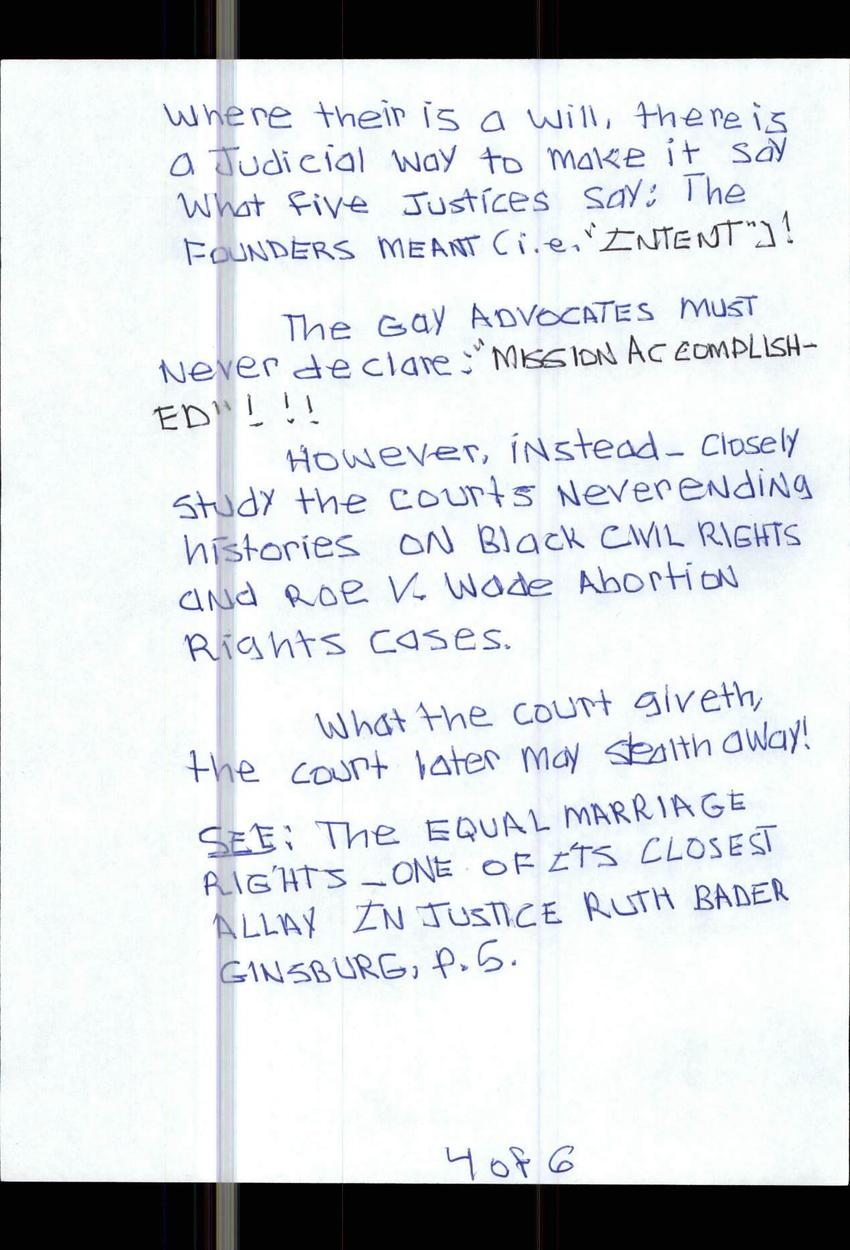 Where their is a will, there is
a Judicial way to make it say
What five Justices say: The
FOUNDERS MEANT (i.e. "INTENT")!
The Gay ADVOCATES MUST
Never declare: "MISSION ACCOMPLISH-
ED" ! !!
However, instead - Closely
study the courts Neverending
histories ON Black CIVIL RIGHTS
and ROE V. Wade Abortion
Rights Cases.
What the court giveth,
the court later may stealth away!
SEE: The EQUAL MARRIAGE
RIGHTS - ONE OF ITS CLOSEST
ALLAY IN JUSTICE RUTH BADER
GINSBURG, P. 5.
4 of 6